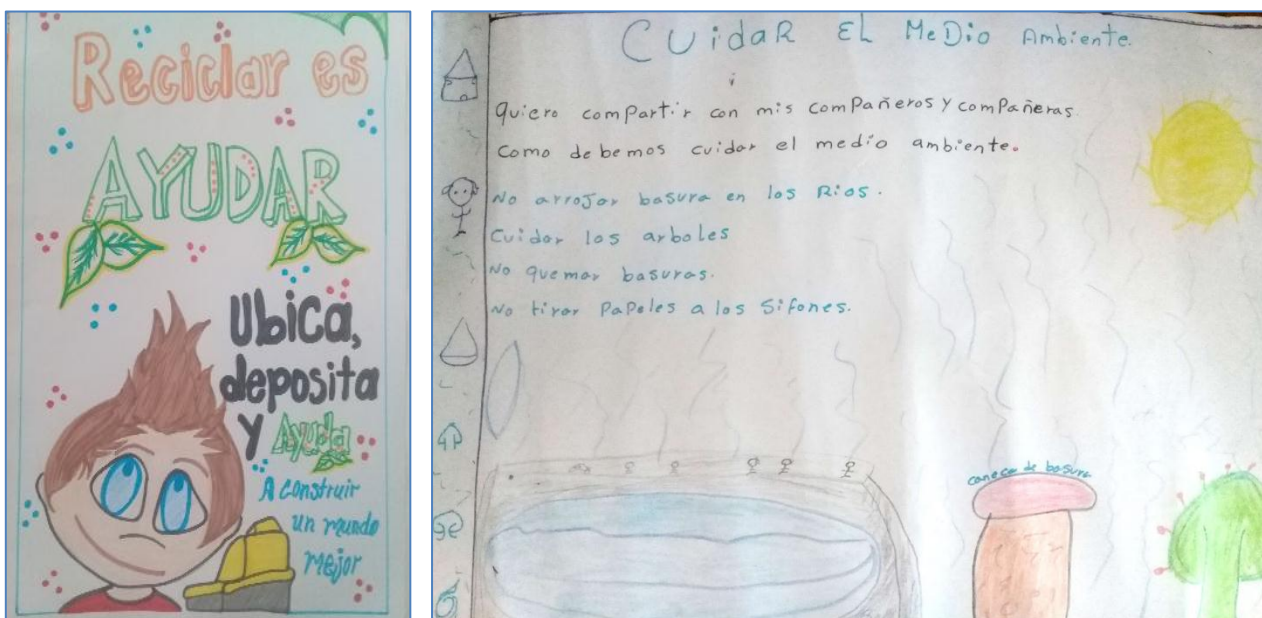 Reciclar es
AYUDAR
Ubica,
deposita
y Ayuda
A construir
un mundo
mejor
CUidaR EL MeDio Ambiente.
Quiero comPartir con mis comPañeros y comPañeras
como debemos cuidar el medio ambiente.
No arrojar basura en los Rios.
Cuidar los arboles
No quemar basuras.
No tirar PaPeles a los Sifones.
caneca de basura